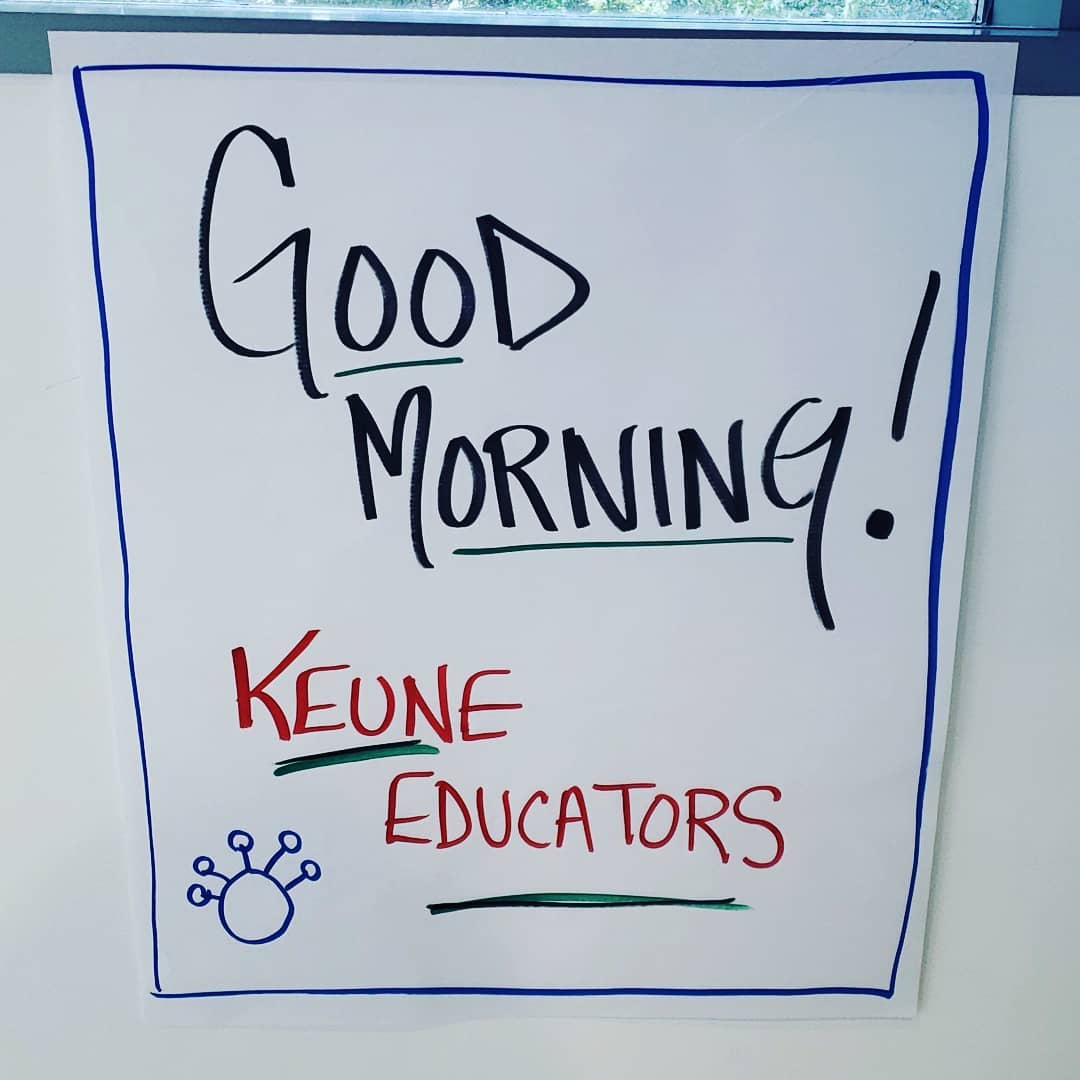 GOOD
MORNING!
KEUNE
EDUCATORS